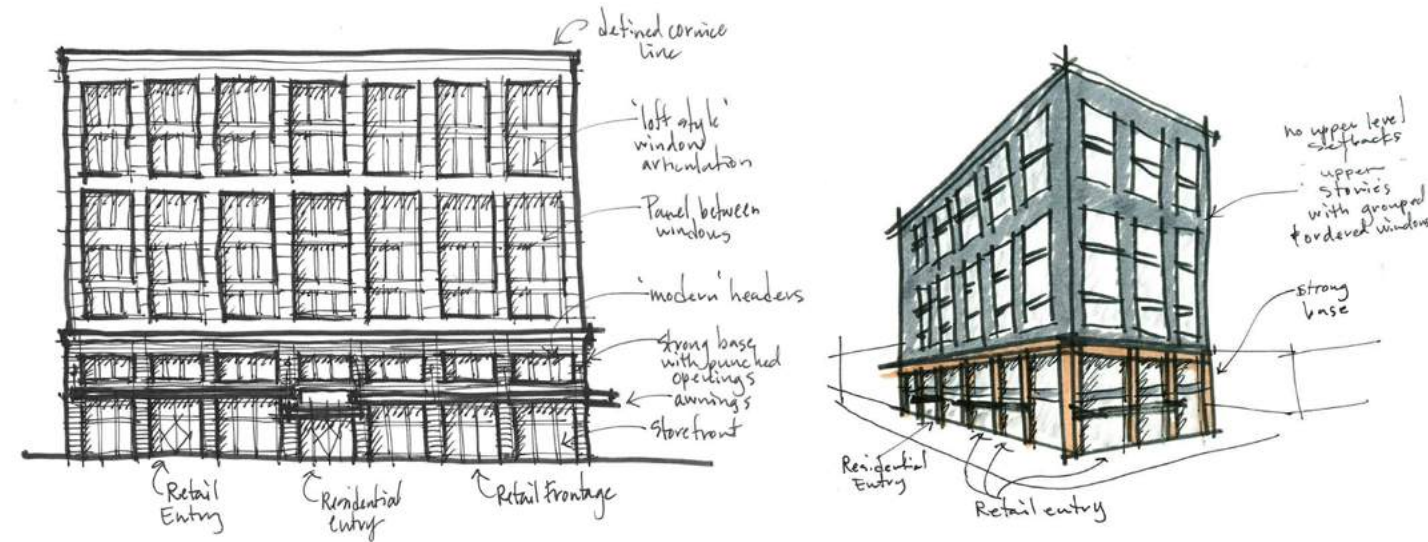 defined cornice
line
'loft style'
window
articulation
Panel between
windows
'modern' headers
strong base
with punched
openings
awnings
Storefront
Retail
Entry
Residential
entry
Retail Frontage
no upper level
setbacks
upper
stories
with grouped
& ordered windows
strong
base
Residential
Entry
Retail entry